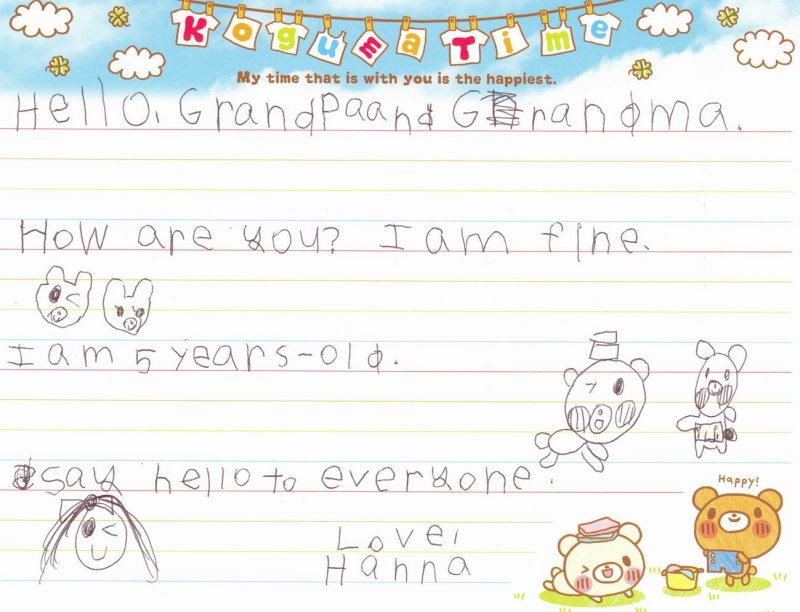 Koguma Time
My time that is with you is the happiest.
Hello, Grandpa and Grandma.
How are you? I am fine.
I am 5 years-old.
say hello to everyone.
Happy!
Love,
Hanna